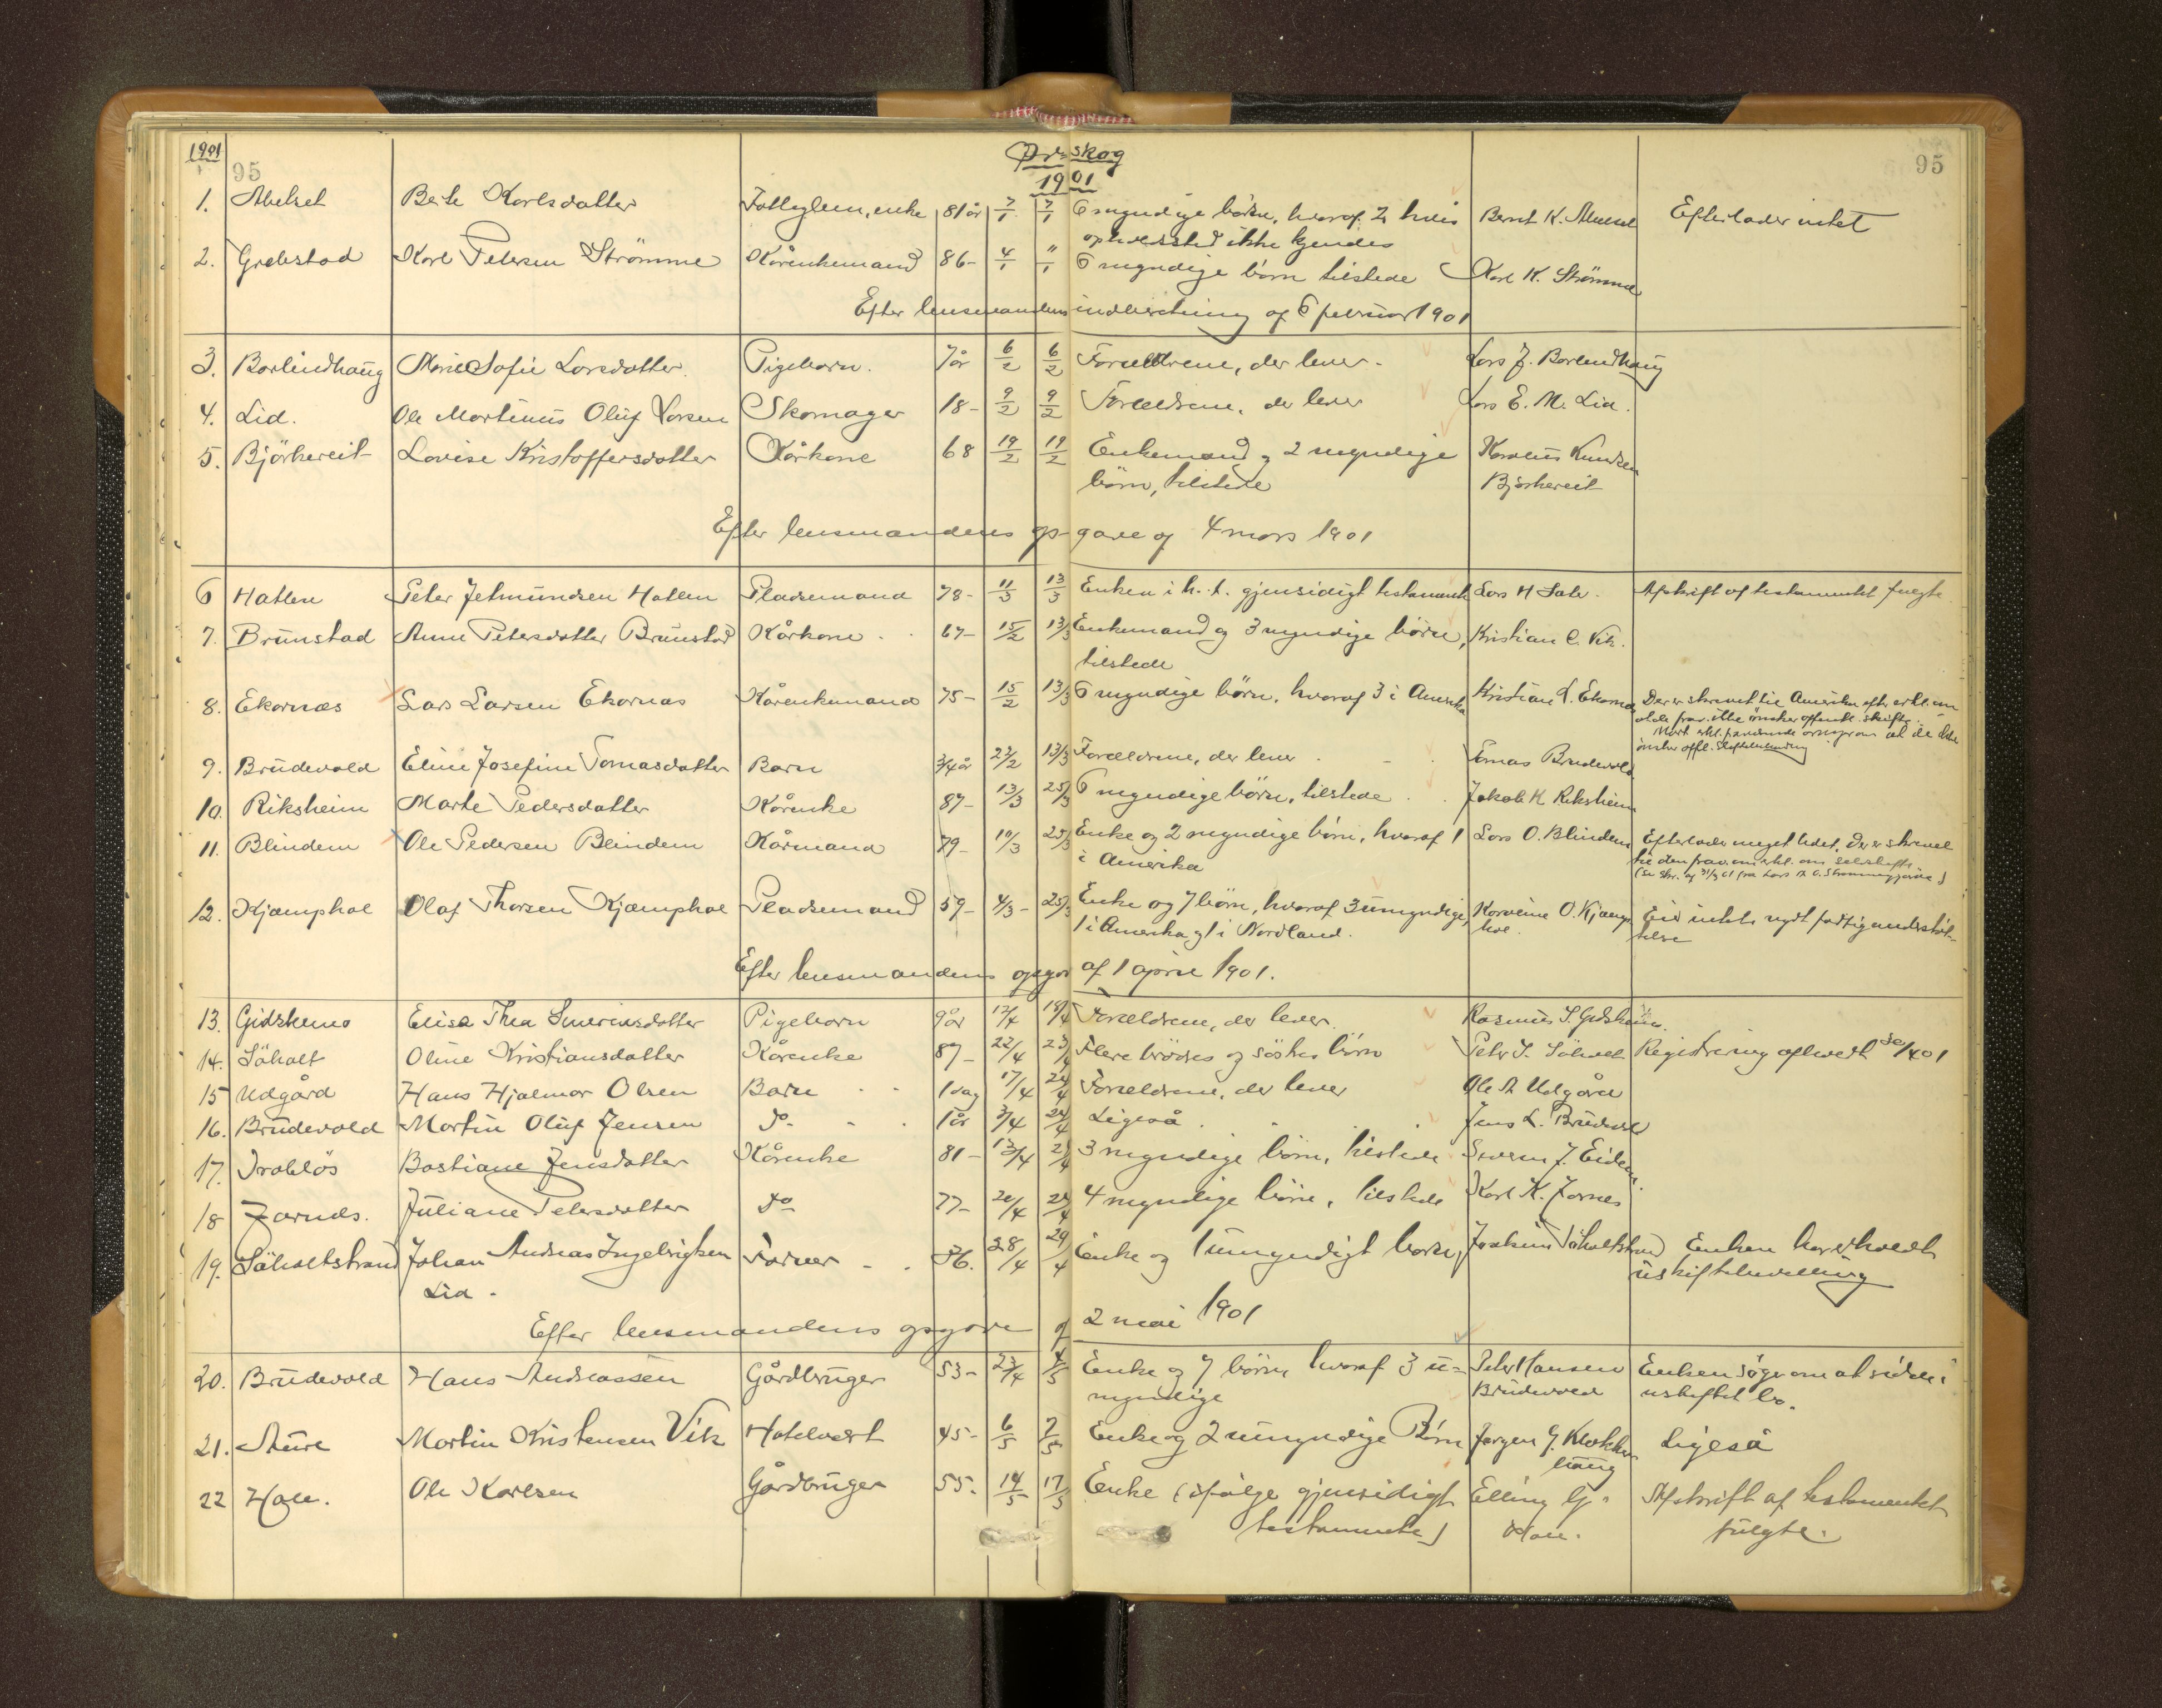 1901
95
Ørskog
95
1901
1. Abelset Berte Karlsdatter Fattiglem, enke 81 år 7/1 7/1 6 myndige børn, hvoraf 2 hvis Bernt K. Efterlader intet
opholdssted ikke kjendes
2. Grebstad Karl Petersen Strømme Kårenkemand 86- 4/1 "/1 6 myndige børn tilstede Karl K. Strømme
Efter lensmandens indberetning af 6 februar 1901
3. Barlindhaug Marie Sofie Larsdatter Pigebarn. 7 år 6/2 6/2 Forældrene, der lever. Lars J. Barlindhaug
4. Lid. Ole Martinus Oluf Larsen Skomager 18- 9/2 9/2 Forældrene, der lever Lars E. M. Lid.
5. Björkereit Lovise Kristoffersdatter Kårkone 68 19/2 19/2 Enkemand og 2 myndige Karolus Knudsen
børn, tilstede Bjørkereit
Efter lensmandens opgave af 4 mars 1901
6 Hatlen Peter Jetmundsen Hatlen Pladsemand 78- 11/3 13/3 Enken i h. t. gjensidigt testament Lars H Afskrift af testamentet fulgte.
7. Brunstad Anne Petersdatter Brunstad Kårkone 67- 15/2 13/3 Enkemand og 3 myndige børn, Kristian C. Vik.
tilstede
8. Ekornæs Lars Larsen Ekornæs Kårenkemand 75- 15/2 13/3 6 myndige børn, hvoraf 3 i Amerika Kristian L. Ekornæs Der er skrevet til Amerika efter erkl. om
ønsker offentl. skifte.
ønsker offl. skiftebehandling
9. Brudevold Eline Josefine Tomasdatter Barn 3/4 år 22/2 13/3 Forældrene, der lever Tomas Brudevold
10. Riksheim Marte Pedersdatter Kårenke 87- 13/3 25/3 6 myndige børn, tilstede Jakob K Riksheim
11. Blindem Ole Pedersen Blindem Kårmand 79- 10/3 25/3 Enke og 2 myndige børn, hvoraf 1 Lars O. Blindem Efterlader meget lidet. Der er skrevet
i Amerika til den frav. om erkl. om selvskifte.
12. Kjæmphol Olaf Thorsen Kjæmphol Pladsemand 59- 4/3- 25/3 Enke og 7 børn, hvoraf 3 umyndige, O. Kjæmp
1 i Amerika og 1 i Nordland. hol.
Efter lensmandens opgave af 1 april 1901.
13. Gidskemo Elisa Thea Severinsdatter Pigebarn 9 år 12/4 18/4 Forældrene, der lever. Rasmus S.
14. Söholt Oline Kristiansdatter Kårenke 87- 22/4 23/4 Flere brødres og søstres børn Peter J. Söholt Registrering afholdt 30/4 01
15 Udgård Hans Hjalmar Olsen Barn 1 dag 17/4 24/4 Forældrene, der lever Ole A Udgård
16. Brudevold Martin Oluf Jensen Do. 1 år 3/4 24/4 Ligeså Jens L. Brudevold
17. Drabløs Bastiane Jensdatter Kårenke 81- 12/4 24/4 3 myndige børn, tilstede J. Eidem.
18 Jarnæs. Juliane Petersdatter Do 77- 20/4 24/4 4 myndige børn, tilstede Karl K. Jarnes
19. Söholtstrand Johan Andreas Ingebrigtsen Farver 36. 28/4 29/4 Enke og 1 umyndigt barn, Joakim Söholtstrand Enken har erholdt
Lid. uskiftebevilling
Efter lensmandens opgave af 2 mai 1901
20. Brudevold Hans Andreassen Gårdbruger 53- 23/4 4/5 Enke og 7 børn hvoraf 3 u- Peter Hansen Enken søger om at sidde i
myndige Brudevold uskiftet bo.
21. Aure Martin Kristensen Vik Hotelvert 45- 6/5 7/5 Enke og 2 umyndige Børn Jørgen G. Klokker Ligeså
haug
22 Hole. Ole Karlsen Gårdbruger 55- 14/5 17/5 Enke (ifølge gjensidigt Elling G. Afskrift af testamentet
testamente) Hole. fulgte.